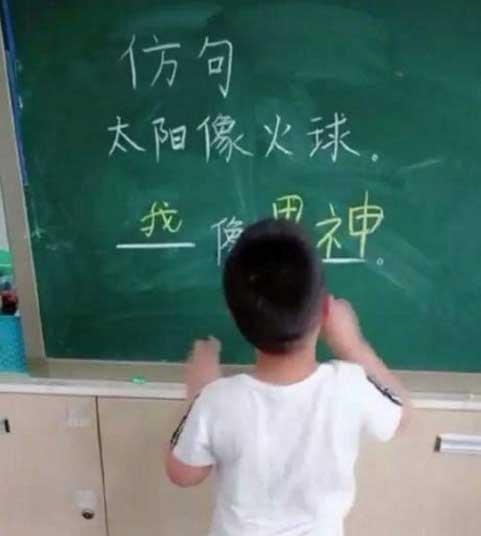 仿句
太阳像火球。
我像男神。